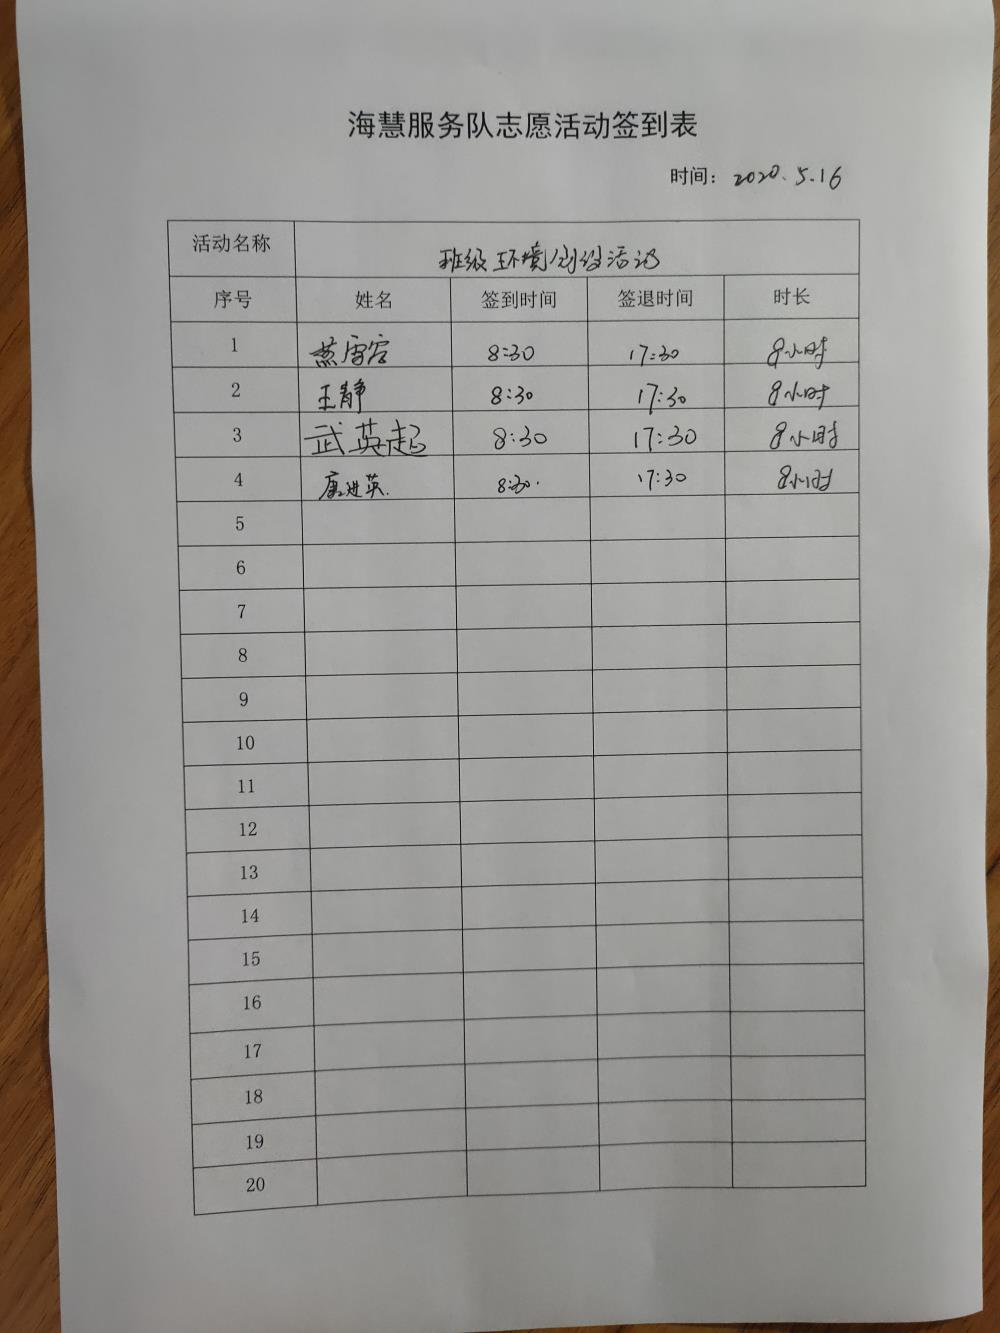 海慧服务队志愿活动签到表
时间：2020.5.16
活动名称 班级环境创设活动
序号 姓名 签到时间 签退时间 时长
1 8:30 17:30 8小时
2 王静 8:30 17:30 8小时
3 武英起 8:30 17:30 8小时
4 康进英. 8:30. 17:30 8小时
5
6
7
8
9
10
11
12
13
14
15
16
17
18
19
20